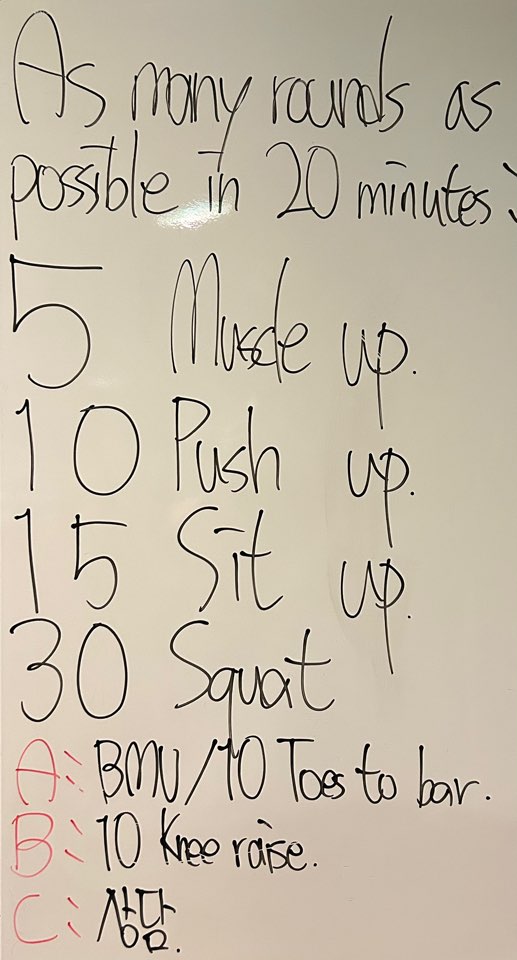 As many rounds as
possible in 20 minutes:
5 Muscle up.
10 Push up.
15 Sit up.
30 Squat
A: BMU/10 Toes to bar.
B: 10 Knee raise.
C: 상담.